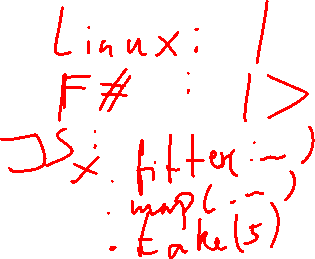 Linux: |
F# : |>
JS: x.filter(...)
.map(...)
.take(5)